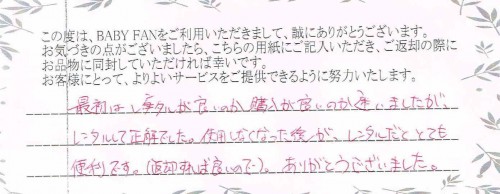 この度は、BABY FANをご利用いただきまして、誠にありがとうございます。
お気づきの点がございましたら、こちらの用紙にご記入いただき、ご返却の際に
お品物に同封していただければ幸いです。
お客様にとって、よりよいサービスをご提供できるように努力いたします。
最初はレンタルが良いのか購入が良いのか迷いましたが、
レンタルして正解でした。使用しなくなった後が、レンタルだととても
便利です。(返却すれば良いので…)。ありがとうございました。